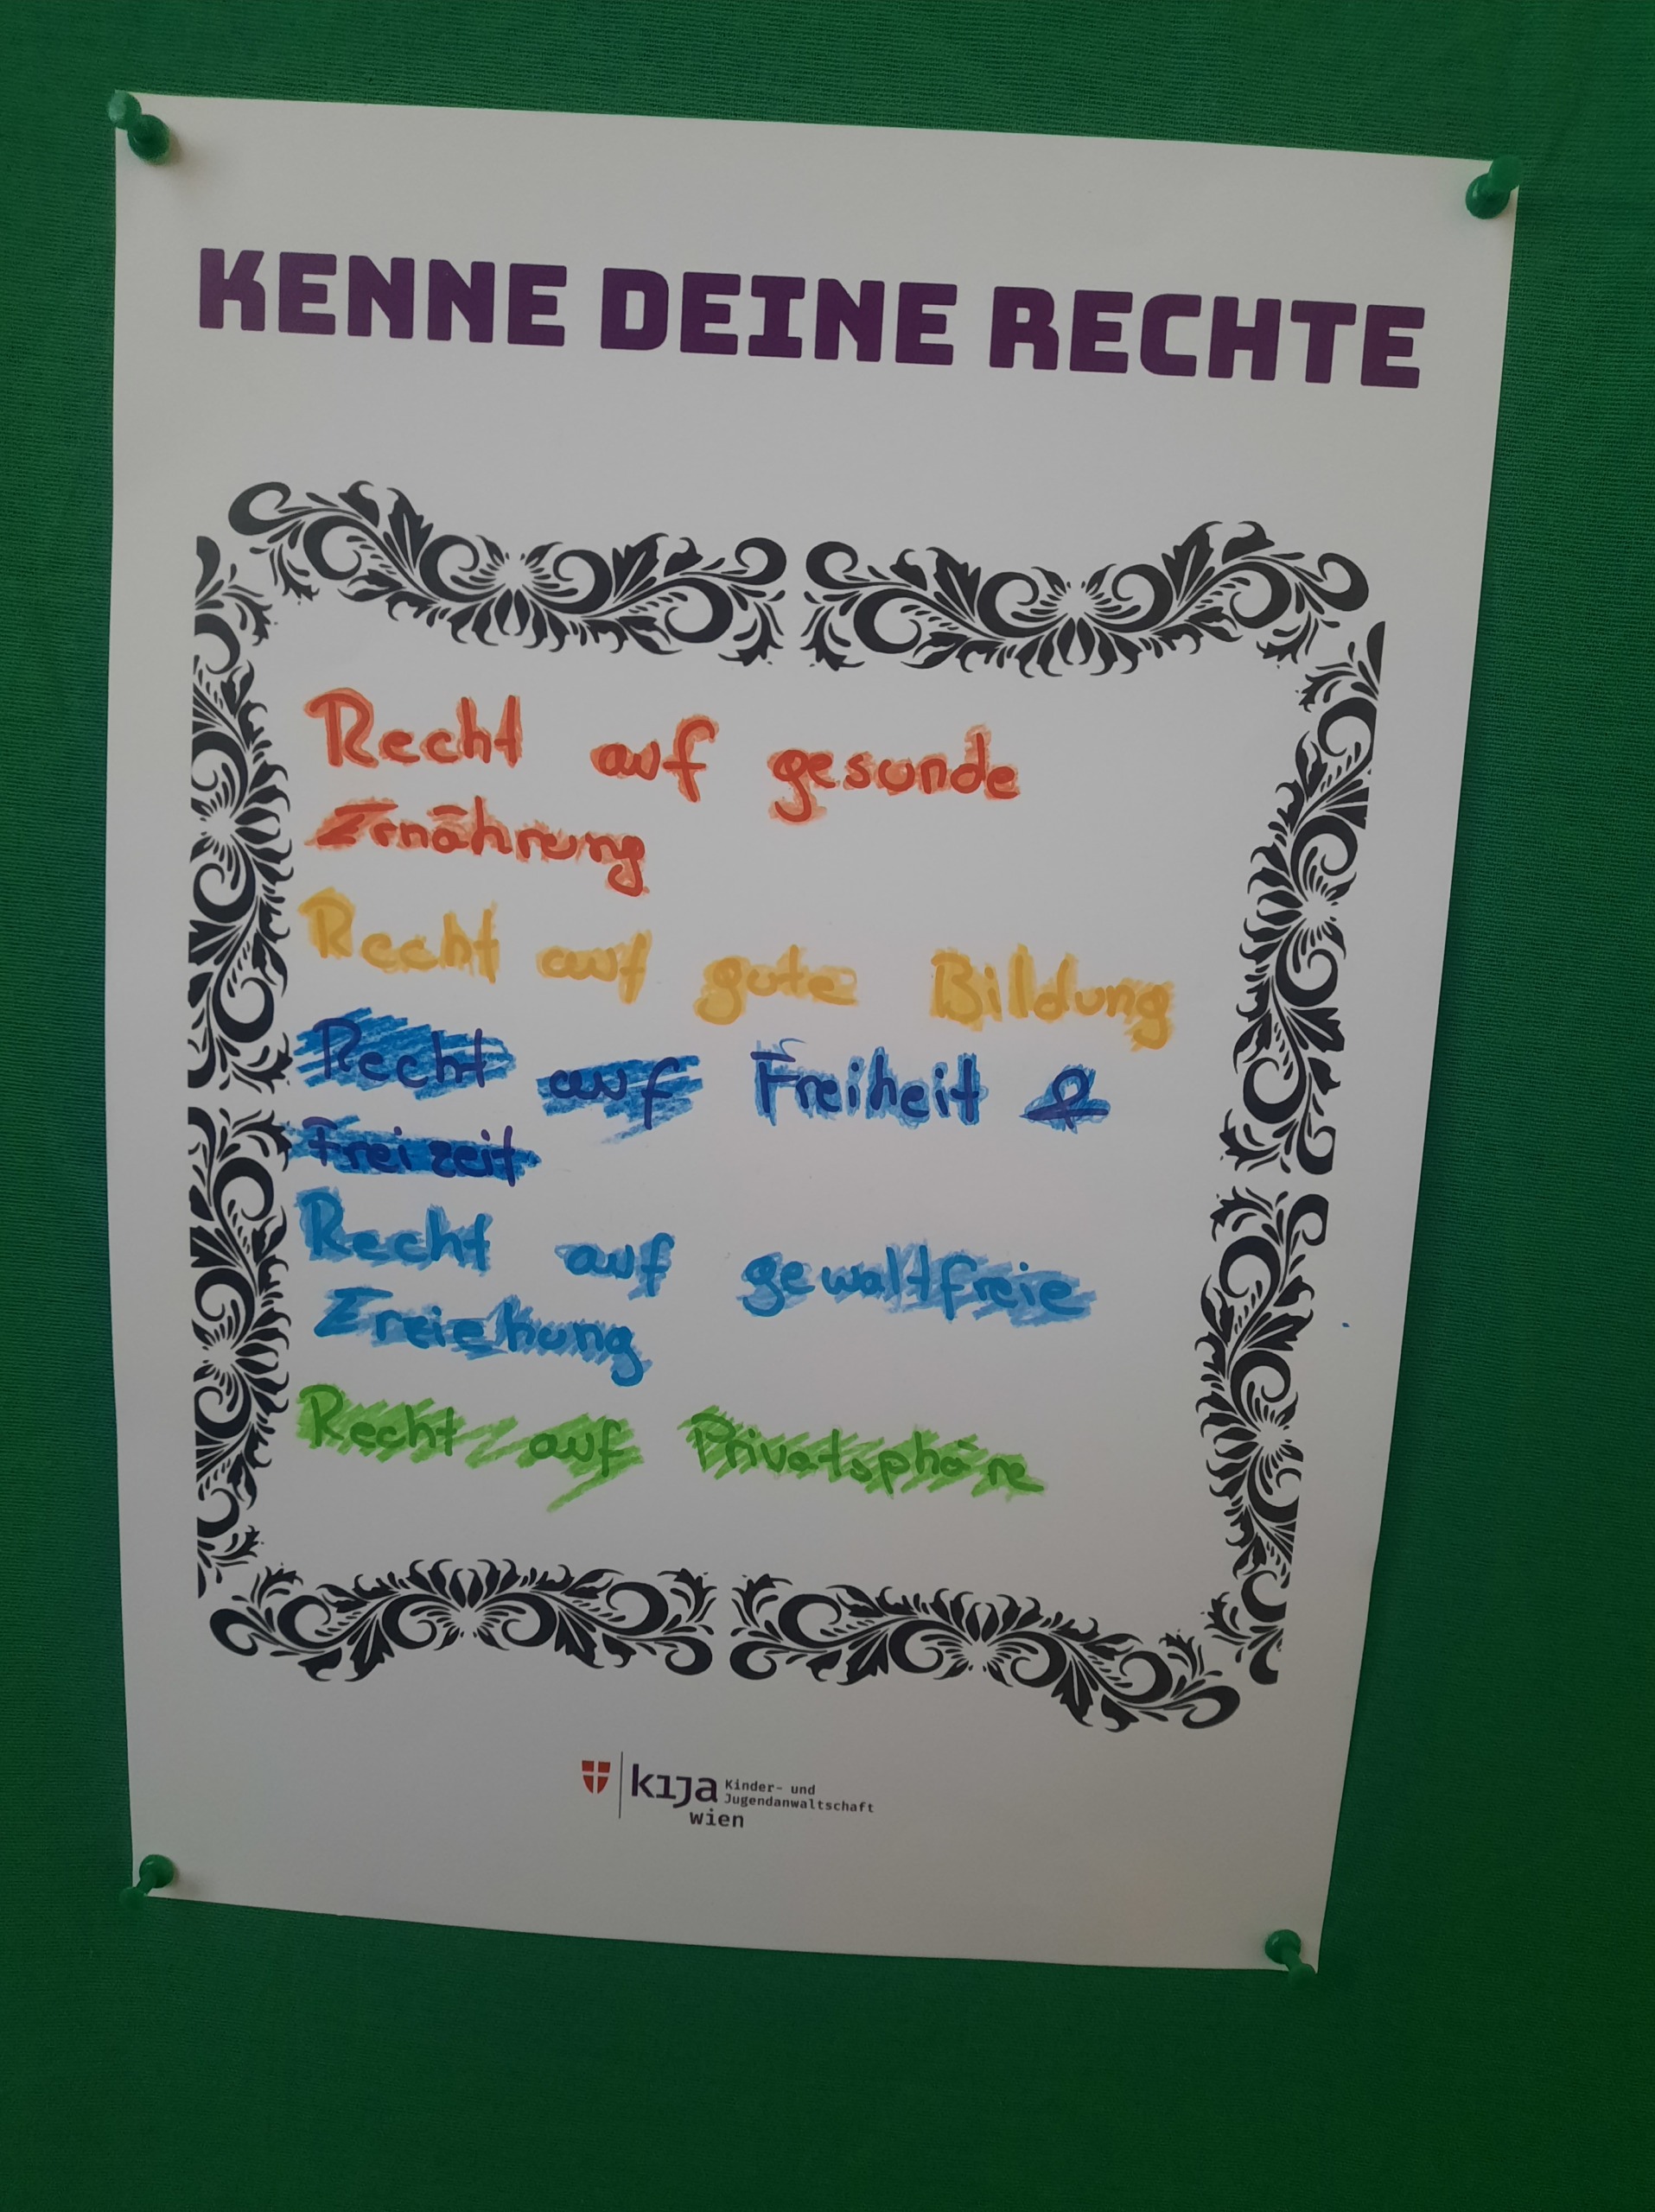 KENNE DEINE RECHTE
Recht auf gesunde
Ernährung
Recht auf gute Bildung
Recht auf Freiheit &
Freizeit
Recht auf gewaltfreie
Ereiehung
Recht auf Privatsphäre
kija Kinder- und
Jugendanwaltschaft
wien